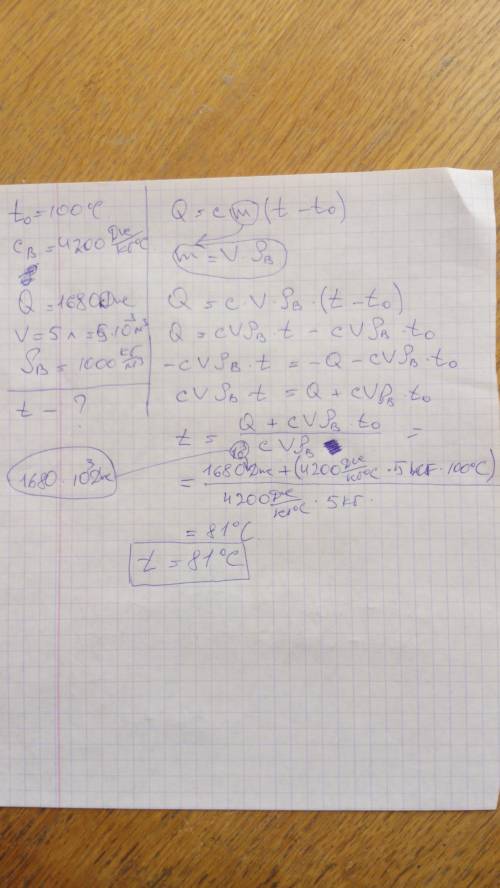 t₀ = 100°C
c_в = 4200 Дж/кг°C
Q = 1680 Дж
V = 5 л = 5·10⁻³ м³
ρ_в = 1000 кг/м³
t - ?
1680·10³ Дж
Q = c m (t - t₀)
m = V·ρ_в
Q = c·V·ρ_в·(t - t₀)
Q = cVρ_в·t - cVρ_в·t₀
-cVρ_в·t = -Q - cVρ_в·t₀
cVρ_в·t = Q + cVρ_в·t₀
t = (Q + cVρ_в·t₀)/(cVρ_в) =
= (1680·10³ Дж + (4200 Дж/кг°C · 5 кг · 100°C))/(4200 Дж/кг°C · 5 кг.
= 81°C
t = 81°C